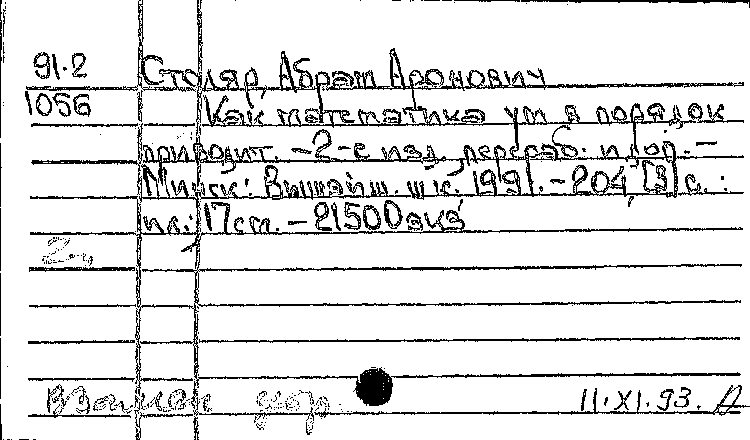 91.2 Столяр, Абрам Аронович
1056 Как математика ум в порядок
приводит. - 2-е изд., перераб. и доп. -
Минск: Вышэйш. шк. 1991. - 204, [3] с. :
ил.; 17 см. - 21500 экз
2
11.XI.93.